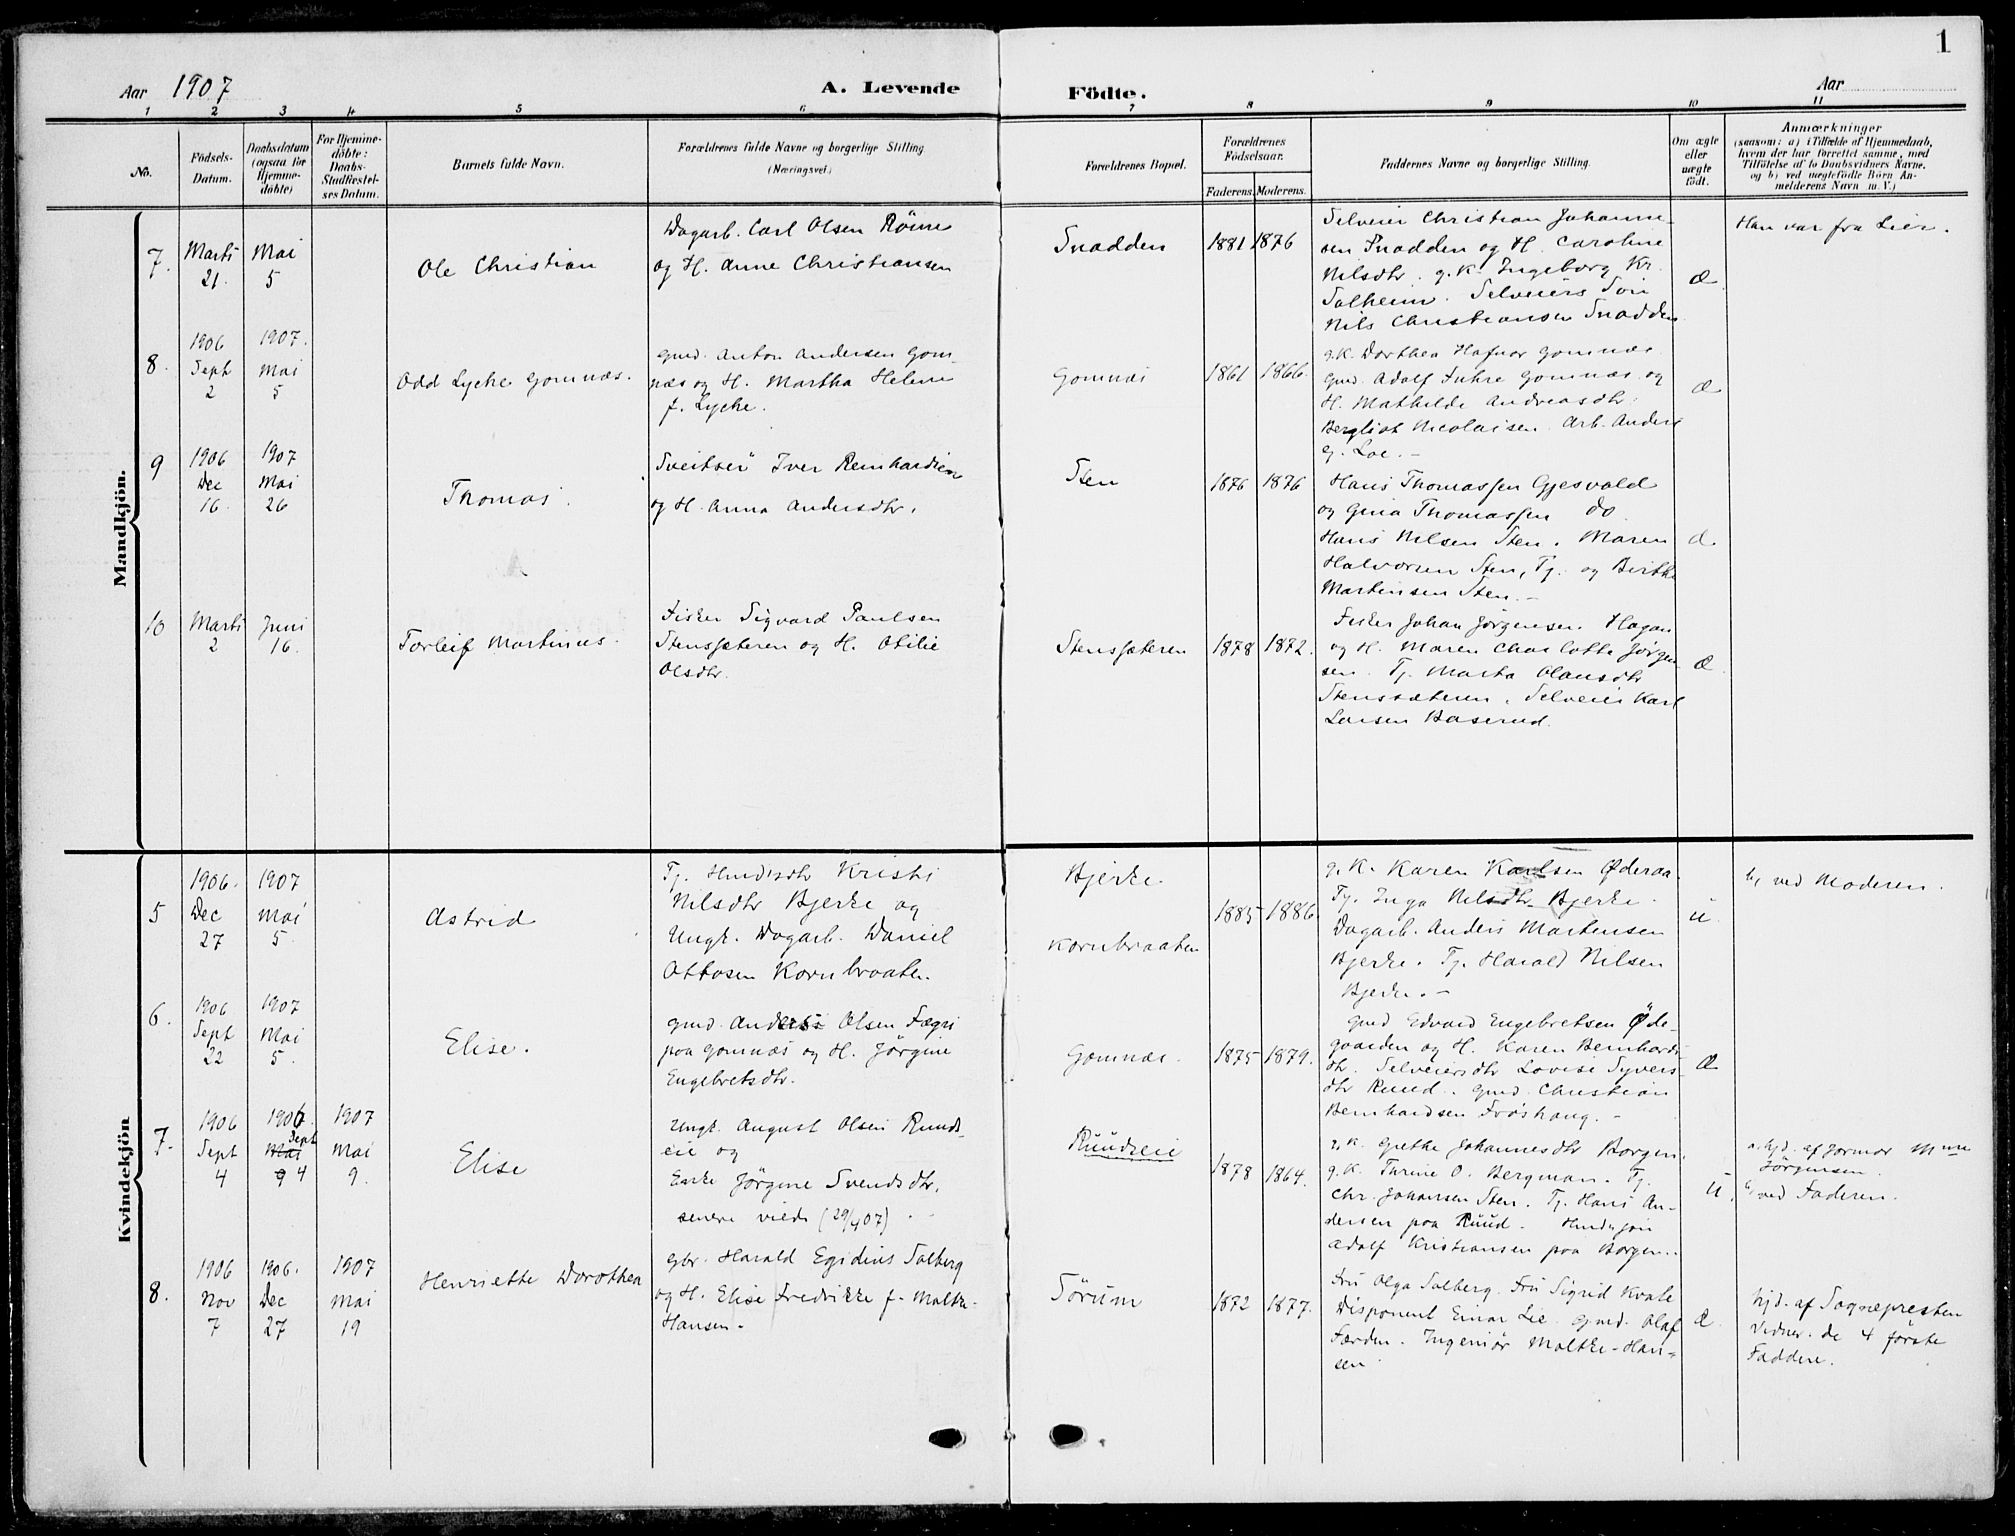 1
Aar 1907
A. Levende
Födte.
Aar
1 2 3 4 5 6 7 8 9 10 11
No.
Födsels-
Datum.
Daabsdatum
(ogsaa for
Hjemme-
döbte)
For Hjemme-
döbte:
Daabs-
Stadfæstel-
ses Datum.
Barnets fulde Navn.
Forældrenes fulde Navne og borgerlige Stilling
(Næringsvei.)
Forældrenes Bopæl.
Forældrenes
Födselsaar.
Faderens. Moderens.
Faddernes Navne og borgerlige Stilling.
Om ægte
eller
uægte
født.
Anmærkninger
(saasom: a) i Tilfælde af Hjemmedaab,
hvem der har forrettet samme, med
Tilföielse af to Daabsvidners Navne.
og b) ved uægtefødte Börn An-
melderens Navn m. V.)
Mandkjön.
7.
Marts
21.
Mai
5
Ole Christian
Dagarb. Carl Olsen Rönne
og H. Anne Christiansen
Snadden
1881 1876
Selveier Christian Johanne-
sen Snadden og H. Caroline
Nilsdtr. g.K. Ingeborg Kr.
Solheim. Selveiers Sön
Nils Christiansen Snadden
Æ
Han var fra Lier.
8.
1906
Sept
2
1907.
Mai
5
Odd Lyche Gomnæs.
Gmd. Anton Andersen Gom-
næs og H. Martha Helene
f. Lyche.
Gomnæs
1861 1866.
g.K. Dorthea Hafnor Gomnæs
Gmd. Adolf Fuhre Gomnæs og
H. Mathilde Andreasdtr.
Bergliot Nicolaisen. Arb. Anders
G. Loe. –
Æ
9
1906
Dec
16.
1907
Mai
26
Thomas.
Sveitser Iver Reinhardsen
og H. Anna Andersdtr.
Sten
1876 1876
Hans Thomassen Gjesvold
og Gina Thomassen do.
Hans Nilsen Sten. Maren
Halvorsen Sten, Tj. og Birthe
Martinsen Sten. –
Æ
10
Marts
2
Juni
16.
Torleif Martinus.
Fisker Sigvard Paulsen
Stenssæteren og H. Otilie
Olsdtr.
Stenssæteren
1878 1872.
Fisker Johan Jörgensen Hagan
og H. Maren Charlotte Jörgen-
sen. Tj. Marta Olausdtr
Stenssæteren. Selveier Karl
Larsen Baserud.
Æ
Kvindekjön
5
1906.
Dec
27
1907
Mai
5.
Astrid
Tj. Husmdtr Kristi
Nilsdtr Bjerke og
Ungk. Dagarb. Daniel
Ottosen Kornbraaten.
Bjerke.
Kornbraaten
1885 1886.
g.K. Karen Karlsen Øderaa.
Tj. Inga Nilsdtr Bjerke.
Dagarb. Anders Martensen
Bjerke. Tj. Harald Nilsen
Bjerke. –
U
b, ved Moderen.
6.
1906
Sept
22
1907
Mai
5.
Elise.
Gmd. Anders Olsen Fægri
paa Gomnæs og H. Jörgine
Engebretsdtr.
Gomnæs.
1875 1879.
Gmd Edvard Engebretsen Øde-
gaarden og H. Karen Bernhards-
dtr. Selveiersdtr Lovise Syvers-
dtr Ruud. Gmd. Christian
Bernhardsen Fröshaug. –
Æ
7.
1906
Sept
4
1906.
Mai
Sept
9 4
1907
Mai
9.
Elise
Ungk. August Olsen Ruuds-
eie og
Enke Jörgine Svendsdtr.
senere viede (29/9 07).
Ruudseie
1878 1864.
g.K. Grethe Johannesdtr Borgen.
g.K. Thrine O. Bergman. Tj.
Chr. Johansen Sten. Tj. Hans An-
dersen paa Ruud. Husm.sön
Adolf Kristiansen paa Borgen.
U.
a. hjd. af Jormor
Jörgensen.
b, ved Faderen.
8.
1906
Nov
7
1906.
Dec
27
1907
Mai
19
Henriette Dorothea
Gbr. Harald Egidius Solberg
og H. Elise Fredrikke f. Moltke-
Hansen.
Sörum
1872 1877.
Fru Olga Solberg. Fru Sigrid Kvale
Disponent Einar Lie. Gmd. Olaf
Færden. Ingeniör Moltke-Han-
sen.
Æ
hjd. af Sognepresten
Vidner: de 4 förste
Faddere.